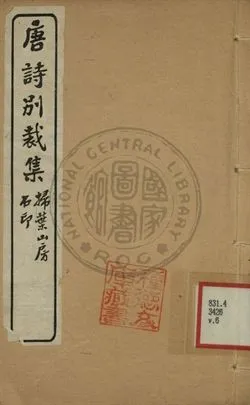 唐詩別裁集
掃葉山房
石印
NATIONAL CENTRAL LIBRARY
R.O.C
國家
圖書
館
831.4
3426
v.6